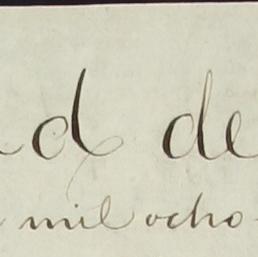 d de
mil ocho